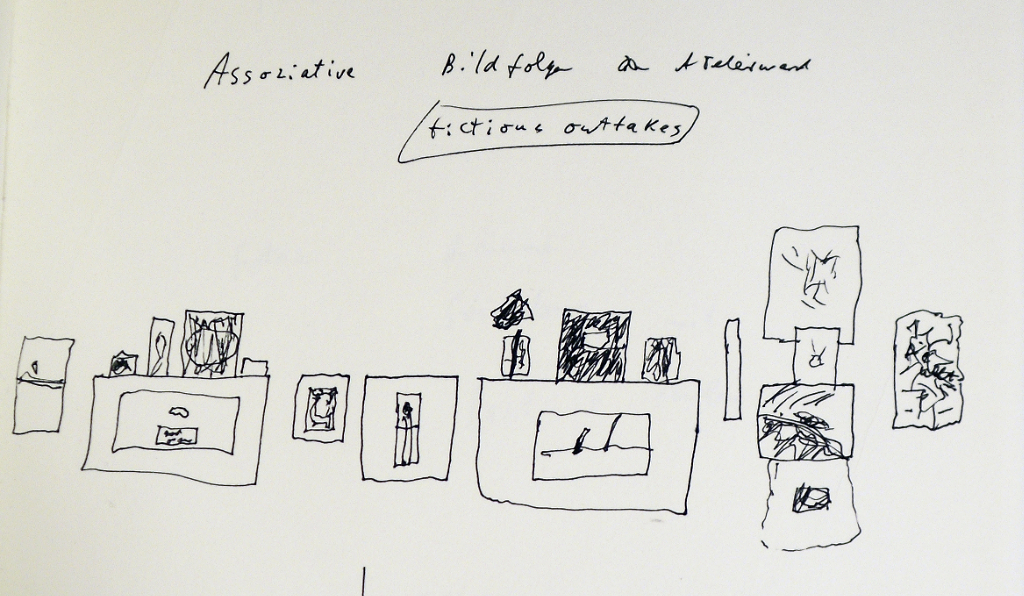 Assoziative Bildfolge an Atelierwand
fictious outtakes